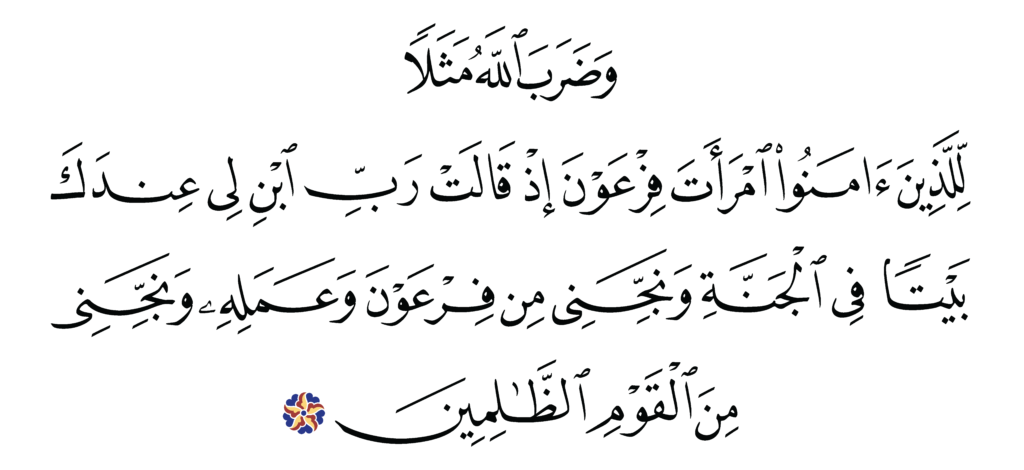 وَضَرَبَ ٱللَّهُ مَثَلًا
لِّلَّذِينَ ءَامَنُوا۟ ٱمْرَأَتَ فِرْعَوْنَ إِذْ قَالَتْ رَبِّ ٱبْنِ لِى عِندَكَ
بَيْتًا فِى ٱلْجَنَّةِ وَنَجِّنِى مِن فِرْعَوْنَ وَعَمَلِهِۦ وَنَجِّنِى
مِنَ ٱلْقَوْمِ ٱلظَّـٰلِمِينَ